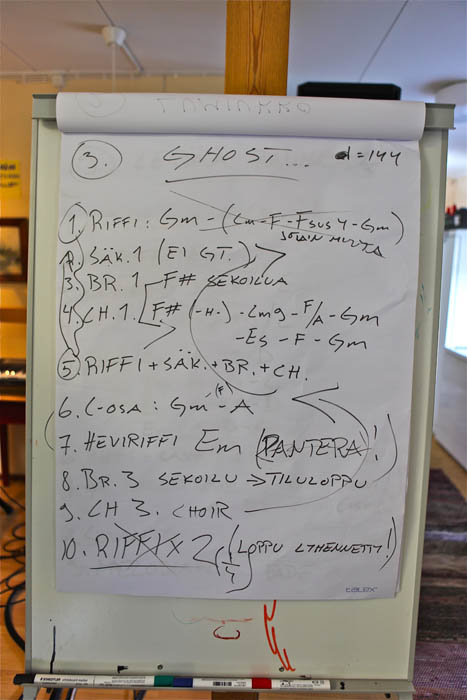 3. GHOST... ♩=144
1. RIFFI: Gm-(Cm-F-Fsus4-Gm)
JOTAIN MUUTA
2. SÄK.1 (EI GT.)
3. BR. 1 F# SEKOILUA
4. CH.1. F# (-H-) - Cm9 - F/A - Gm
- Es - F - Gm
5. RIFFI + SÄK. + BR. + CH.
(F)
6. C-OSA: Gm - A
7. HEVIRIFFI Em (PANTERA!)
8. BR. 3 SEKOILU → TILULOPPU
9. CH 3. CHOIR
10. RIFFI X 2, (LOPPU LYHENNETTY!)